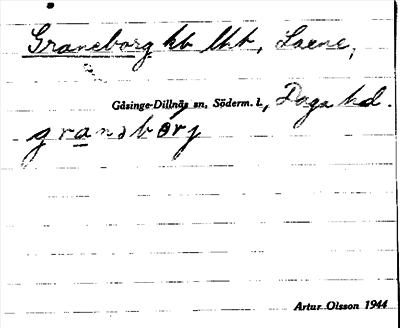 Graneborg hb lht, Laene,
Gåsinge-Dillnäs sn, Söderm. l., Daga hd.
granəbórj
Artur Olsson 1944